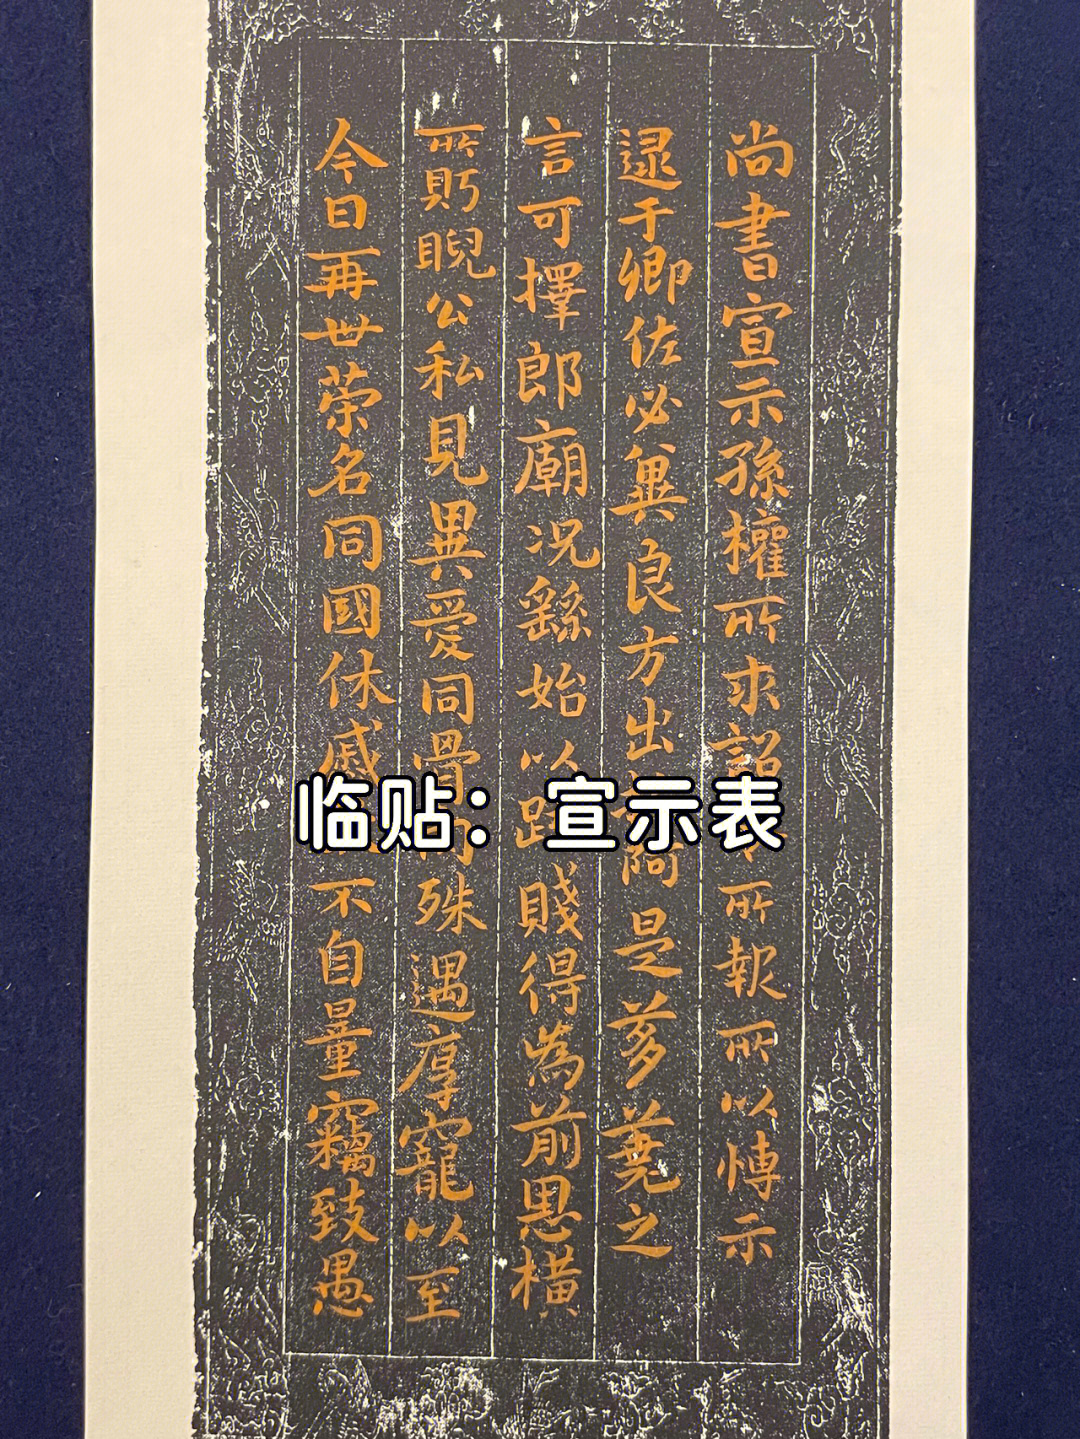 尚書宣示孫權所求詔所報所以愽示
逮于卿佐必冀良方出阿是芻蕘之
言可擇郎廟况繇始以疏賤得為前恩橫
所貺睨公私見異愛同骨肉殊遇厚寵以至
今日再世荣名同國休慼不自量竊致愚
临贴：宣示表